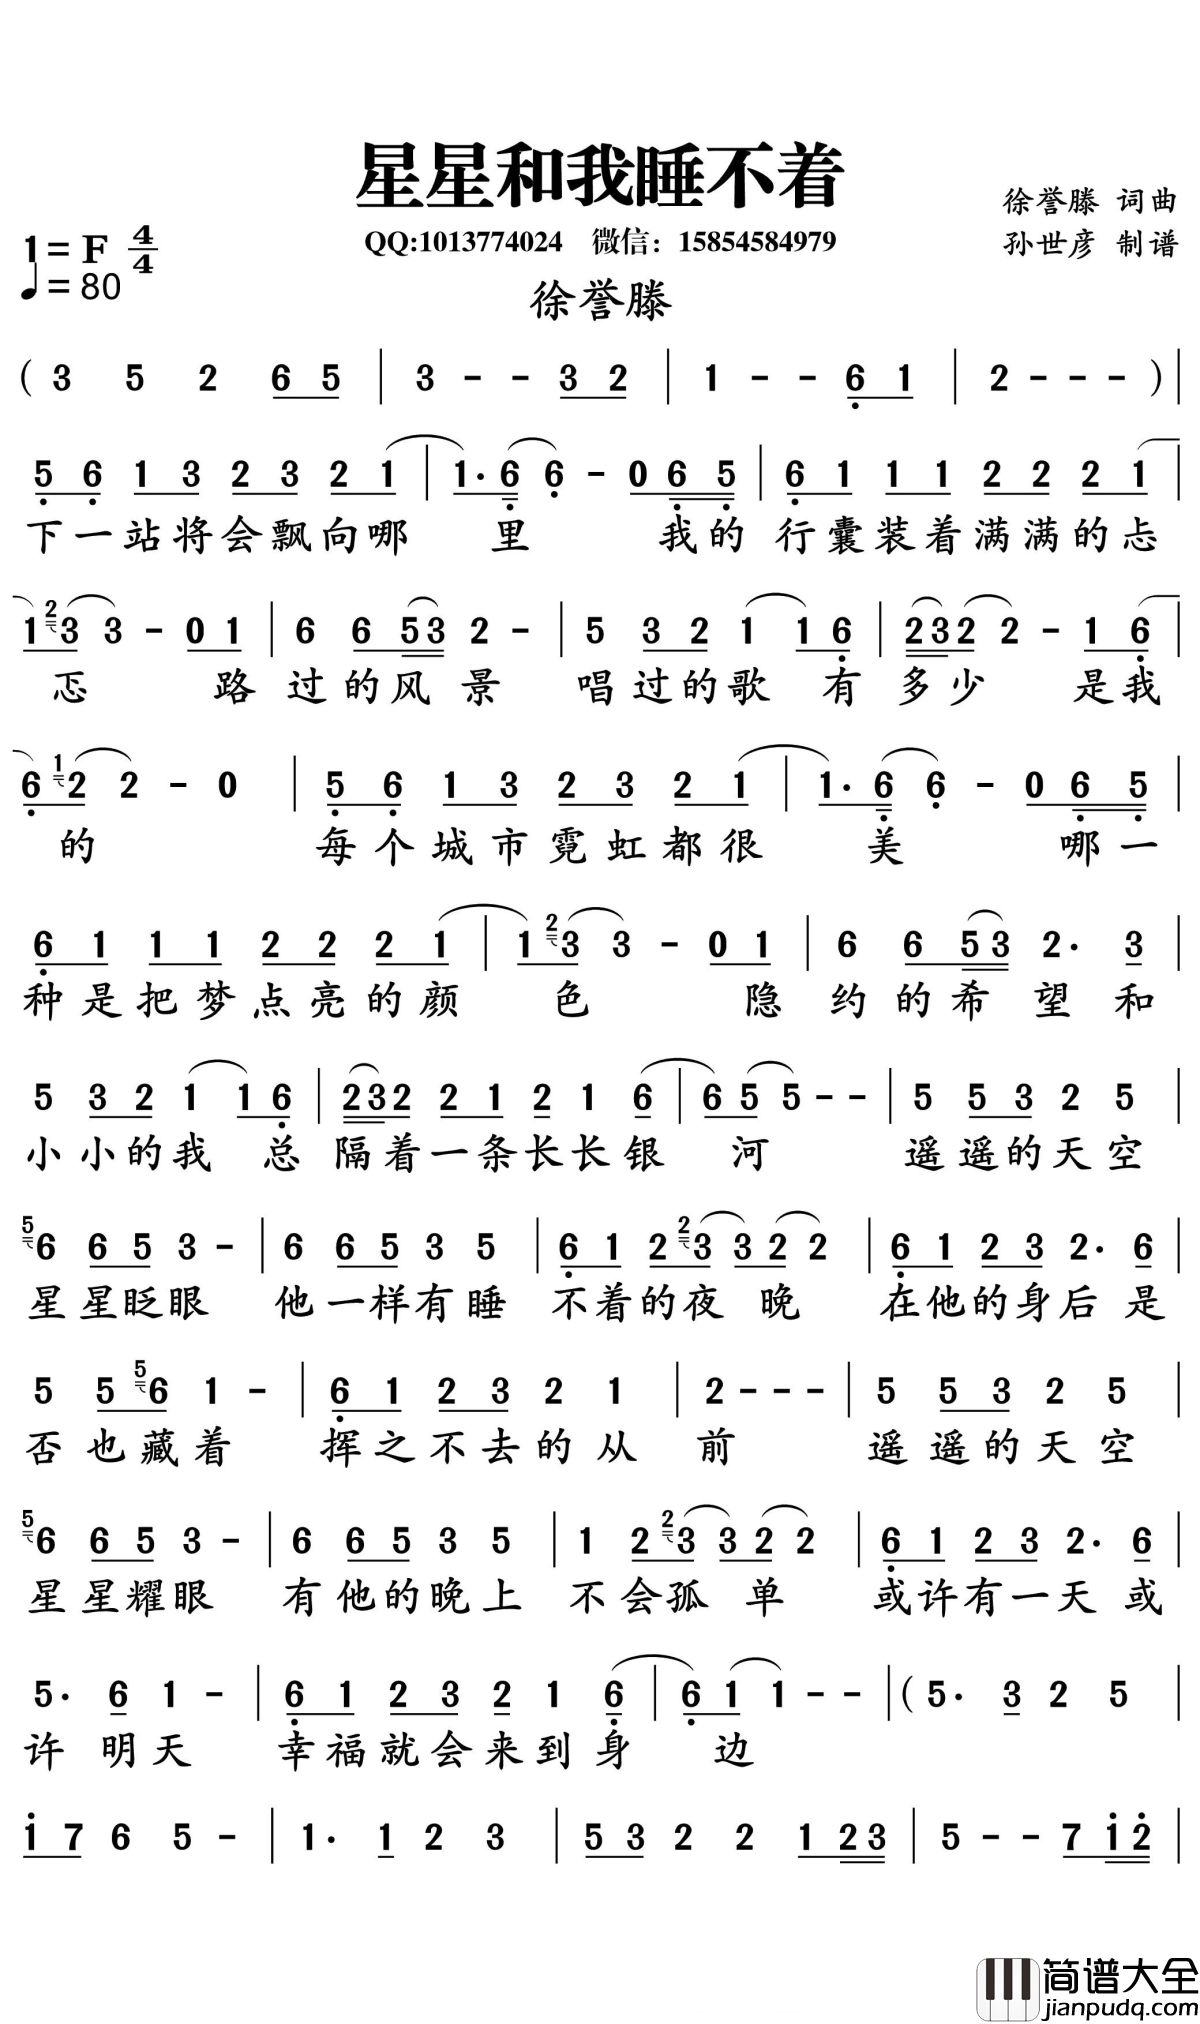 星星和我睡不着
徐誉滕 词曲
QQ:1013774024 微信：15854584979
孙世彦 制谱
1= F 4/4
♩= 80
徐誉滕
( 3 5 2 6 5 | 3 - - 3 2 | 1 - - 6 1 | 2 - - - ) |
5 6 1 3 2 3 2 1 | 1· 6 6 - 0 6 5 | 6 1 1 1 2 2 2 1 |
下一站将会飘向哪 里 我的 行囊装着满满的忐
1 2 3 3 - 0 1 | 6 6 5 3 2 - | 5 3 2 1 1 6 | 2 3 2 2 - 1 6 |
忑 路 过的风 景 唱过的歌 有 多少 是我
6 1 2 2 - 0 | 5 6 1 3 2 3 2 1 | 1· 6 6 - 0 6 5 |
的 每个城市霓虹都很 美 哪一
6 1 1 1 2 2 2 1 | 1 2 3 3 - 0 1 | 6 6 5 3 2· 3 |
种是把梦点亮的颜 色 隐 约的希 望 和
5 3 2 1 1 6 | 2 3 2 2 1 2 1 6 | 6 5 5 - - | 5 5 3 2 5 |
小小的我 总 隔着一条长长银 河 遥遥的天空
5 6 6 5 3 - | 6 6 5 3 5 | 6 1 2 2 3 3 2 2 | 6 1 2 3 2· 6 |
星星眨眼 他一样有睡 不着的夜 晚 在他的身后是
5 5 5 6 1 - | 6 1 2 3 2 1 | 2 - - - | 5 5 3 2 5 |
否也藏着 挥之不去的从 前 遥遥的天空
5 6 6 5 3 - | 6 6 5 3 5 | 1 2 2 3 3 2 2 | 6 1 2 3 2· 6 |
星星耀眼 有他的晚上 不会孤 单 或许有一天或
5· 6 1 - | 6 1 2 3 2 1 6 | 6 1 1 - - | ( 5· 3 2 5 |
许 明天 幸福就会来到身 边
1 7 6 5 - | 1· 1 2 3 | 5 3 2 2 1 2 3 | 5 - - 7 1 2 |
简谱大全
jianpudq.com